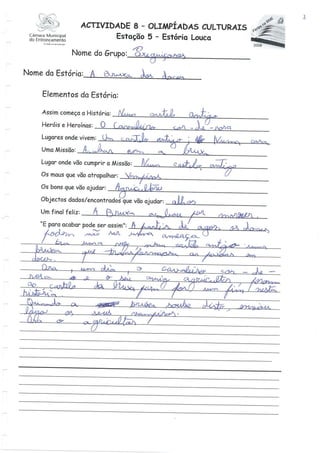 ACTIVIDADE 8 – OLIMPÍADAS CULTURAIS
Estação 5 – Estória Louca
Câmara Municipal
do Entroncamento
2008
Nome do Grupo:
Nome da Estória: A Bruxa dos doces
Elementos da Estória:
Assim começa a História: Num castelo antigo
Heróis e Heroínas: O Cavaleiro cor-de-rosa
Lugares onde vivem: Um castelo antigo, Numa casa
Uma Missão: a bruxa
Lugar onde vão cumprir a Missão: Num castelo antigo
Os maus que vão atrapalhar: Vampiros
Os bons que vão ajudar: Agricultor
Objectos dados/encontrados que vão ajudar: alhos
Um final feliz: A Bruxa acabou por morrer.
"E para acabar pode ser assim": A partir de agora os doces
podem não ser uma ameaça
Era uma vez, num castelo antigo uma
bruxa que transformava as pessoas em
doces.
Ora, um dia o cavaleiro cor-de-
rosa e o seu amigo agricultor, foram
ao castelo da bruxa para pôr um fim nesta
história.
Quando a bruxa soube disto, enviou
logo os seus vampiros.
Ora o agricultor